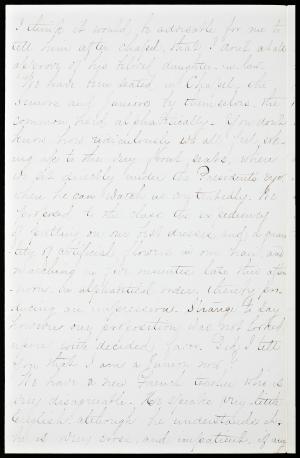 I think it would be advisable for me to
tell him after chapel, that I don't at all
approve of his
daughter-in-law.
We have been seated in Chapel, the
seniors and juniors by themselves, the
common herd alphabetically. You don't
know how ridiculously we all feel,
up to the very front seats, where
we sit directly under the President's eye,
where he can watch us
We
proposed to the class the expediency
of putting on our best dresses and a quan-
tity of artificial flowers in our hair and
marching in five minutes late this after-
noon, in alphabetical order, thereby pro-
ducing an impression. Strange to say
however our proposition was not looked
upon with decided favor. Did I tell
you that I am a Junior now?
We have a new French teacher who is
very disagreeable. He speaks very little
English although he understands it.
he is very cross, and impatient, if any